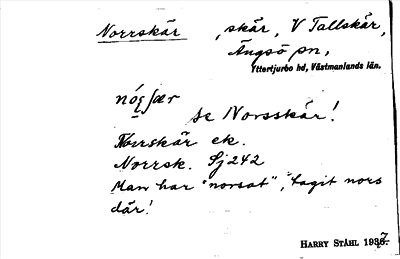 Norrskär , skär, V Tallskär,
Ängsö sn,
Yttertjurbo hd, Västmanlands län.
nóʂʃær
se Norsskär!
Norrskär ek.
Norrsk. Sj 242
Man har "norsat", tagit nors
där!
HARRY STÅHL 1937.